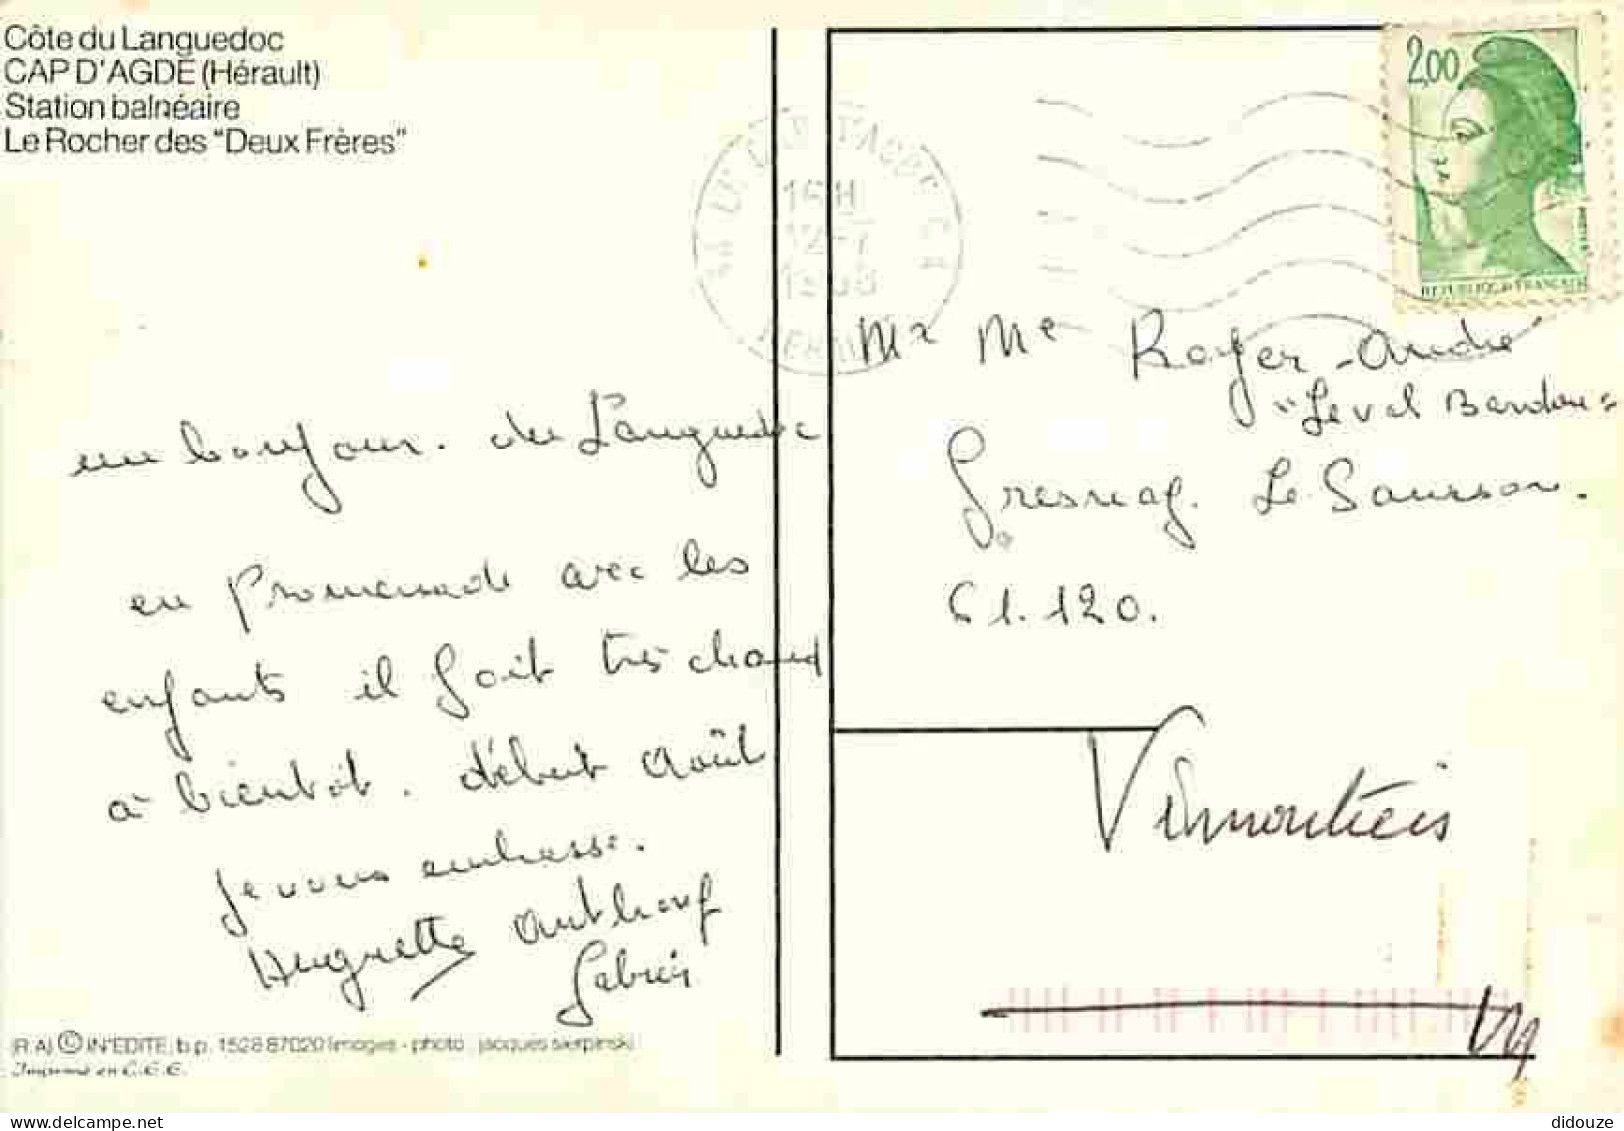 Côte du Languedoc
CAP D'AGDE (Hérault)
Station balnéaire
Le Rocher des "Deux Frères"
2,00
REPUBLIQUE FRANÇAISE
16 H
12-7
un bonjour. du Languedoc
en promenade avec les
enfants il fait très chaud
à bientôt. début Août
je vous embrasse.
Huguette
(R.A) © IN'EDITE, b.p. 1528 87020 limoges - photo : jacques sierpinski
Imprimé en C.E.E.
Mr Me Royer-André
"Leval
Fresnay. Le Saurson.
61.120.
Vimoutiers
didouze